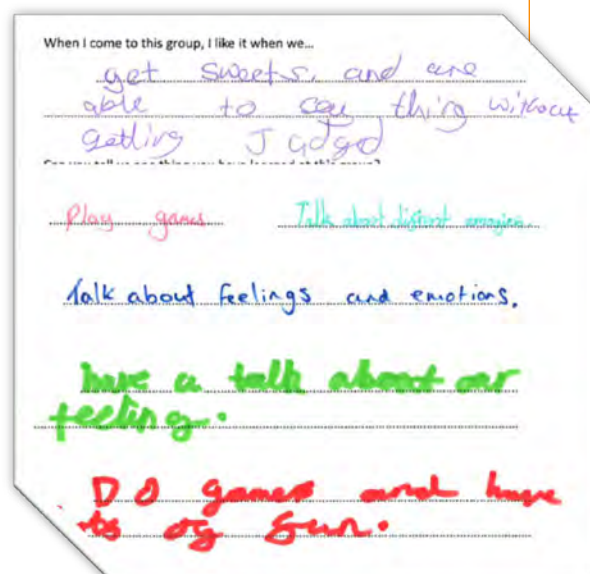 When I come to this group, I like it when we...
get sweets, and are
able to say thing without
getting Jadged
Can you tell us one thing you have learned at this group?
Play games
Talk about distant
Talk about feelings and emotions.
have a talk about our
feeling.
DO games and have
fun.